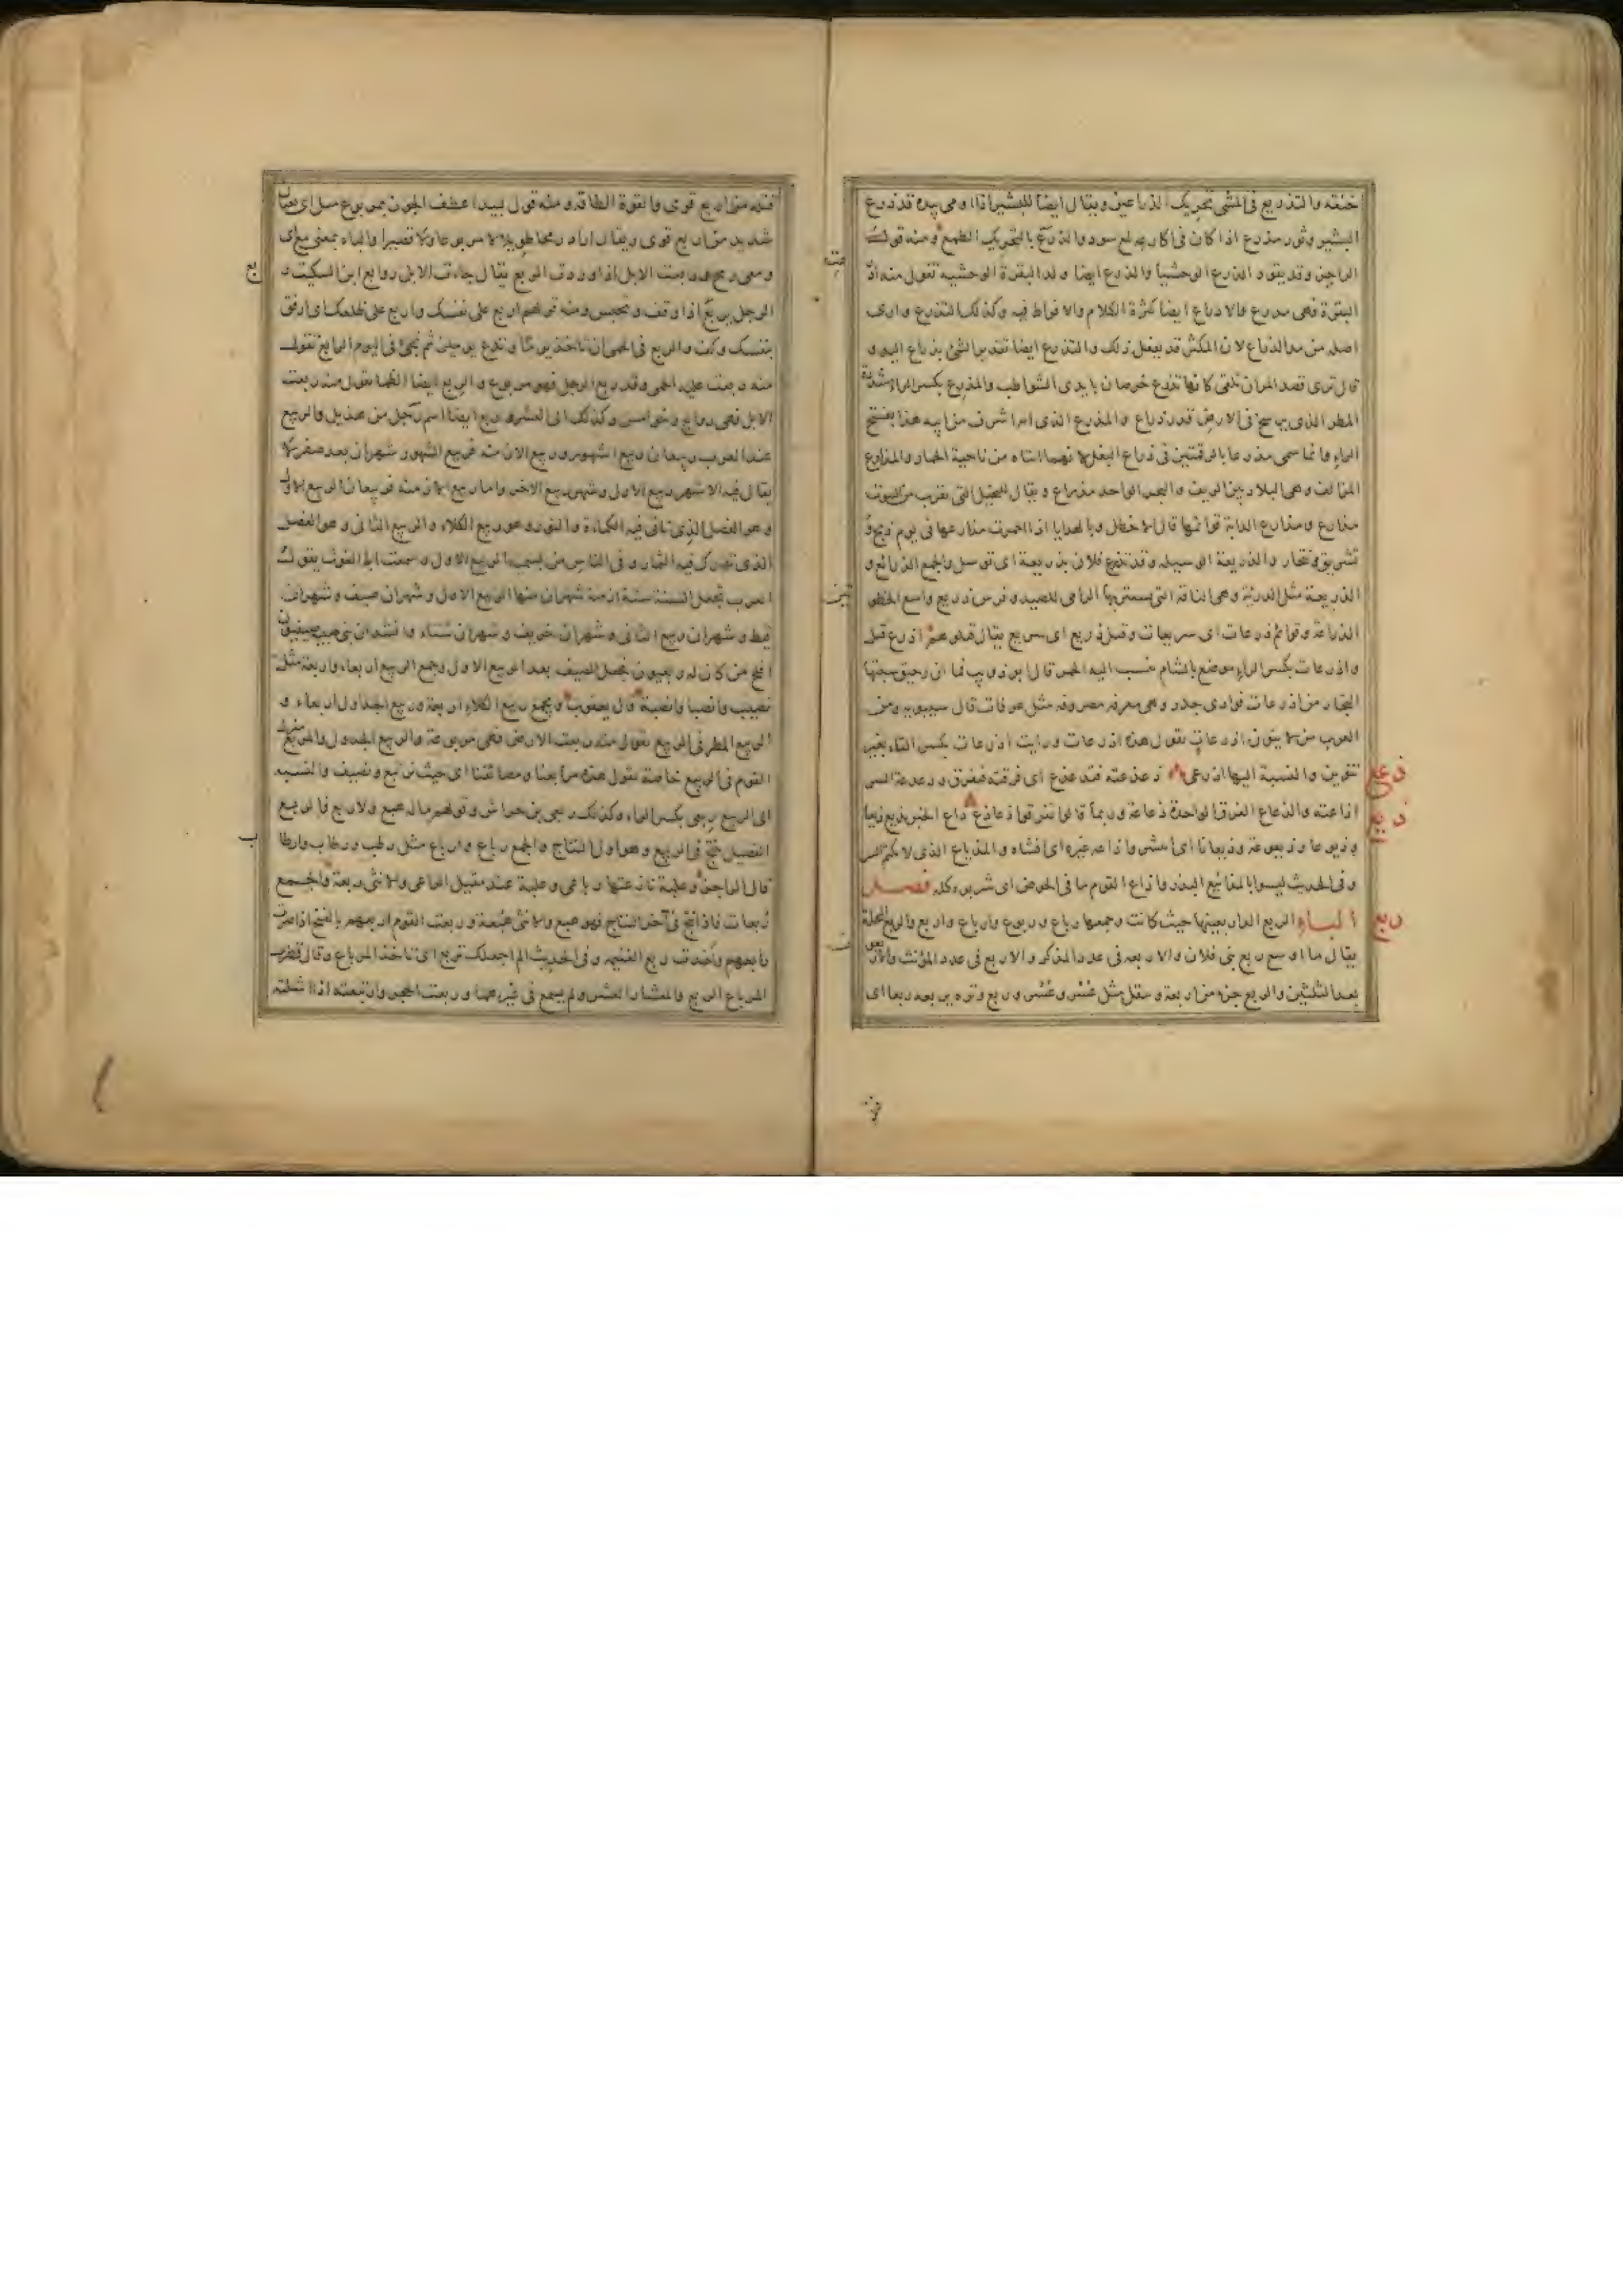 خنقه والتذريع فى المشى تحريك الذراعين ويقال ايضا للبشير اذا اومى بيده قد ذرع
البشير وثور مذرع اذا كان فى اكارعه لمع سود والذرع بالتحريك الطمع ومنه قول
الراجز وقد يقود الذرع الوحشيا والذرع ايضا ولد البقرة الوحشيه تقول منه اذرعت
البقرة فهى مذرع والاذراع ايضا كثرة الكلام والافراط فيه وكذلك التذرع وارى
اصله من مد الذراع لان المكثر قد يفعل ذلك والتذرع ايضا تقدير الشئ بذراع اليد و
قال ترى قصد المران تلقى كانها تذرع خرصان بايدى الشواطب والمذرع بكسر الراء مشددة
المطر الذى يرسخ فى الارض قدر ذراع والمذرع الذى امه اشرف من ابيه هذا بفتح
الراء وانما سمى مذرعا بالرقمتين فى ذراع البغل لانهما اتتاه من ناحية الحمار والمذارع
المزالف وهى البلاد بين الريف والبر الواحد مذراع ويقال للنخيل التى تقرب من البيوت
مذارع ومذارع الدابة قوائمها قال الاخطل وبالهدايا اذا احمرت مذارعها فى يوم ذبح و
تشريق وتنحار والذريعة الوسيله وقد تذرع فلان بذريعة اى توسل والجمع الذرائع و
الذريعة مثل الدريئة وهى الناقه التى يستتر بها الرامى للصيد وفرس ذريع واسع الخطو
الذراعة وقوائم ذرعات اى سريعات وقتل ذريع اى سريع يقال قتلوهم اذرع قتل
واذرعات بكسر الراء موضع بالشام تنسب اليه الخمر قال ابو ذويب فما ان رحيق سبتها
التجار من اذرعات فوادى جدر وهى معرفه مصروفه مثل عرفات قال سيبويه ومن
العرب من لا ينون اذرعات يقول هذه اذرعات ورايت اذرعات بكسر التاء بغير
تنوين والنسبة اليها اذرعى ذعذعته فتذعذع اى فرقته فتفرق وذعذعة السر
ذعع
اذاعته والذعاع الفرق الواحدة ذعاعة وربما قالوا تفرقوا ذعاذع ذاع الخبر يذيع ذيعا
ذيع
وذيوعا وذيعوعة وذيعانا اى انتشر واذاعه غيره اى افشاه والمذياع الذى لا يكتم السر
وفى الحديث ليسوا بالمذاييع البذر واذاع القوم ما فى الحوض اى شربوه كله فصل
الراء الربع الدار بعينها حيث كانت وجمعها رباع وربوع وارباع واربع والربع المحلة
ربع
يقال ما اوسع ربع بنى فلان والاربعه فى عدد المذكر والاربع فى عدد المؤنث والاربعون
بعد الثلثين والربع جزء من اربعة ويثقل مثل عسر وعسر وربع وتره يربعه ربعا اى
فتله من اربع قوى والقوة الطاقه ومنه قول لبيد اعطف الجون بمربوع متل اى بعنان
شديد من اربع قوى ويقال اراد رمحا طويلا لا مربوعا ولا قصيرا والباء بمعنى مع اى
ومعى رمح وربعت الابل اذا وردت الربع يقال جاءت الابل روابع ابن السكيت ربع
الرجل يربع اذا وقف وتحبس ومنه قولهم اربع على نفسك واربع على ظلعك اى ارفق
بنفسك وكف والربع فى الحمى ان تاخذ يوما وتدع يومين ثم تجئ فى اليوم الرابع تقول
منه ربعت عليه الحمى وقد ربع الرجل فهو مربوع والربع ايضا الظما تقول منه ربعت
الابل فهى روابع وخوامس وكذلك الى العشر وربع ايضا اسم رجل من هذيل والربيع
عند العرب ربيعان ربيع الشهور وربيع الازمنة فربيع الشهور شهران بعد صفر ولا
يقال فيه الا شهر ربيع الاول وشهر ربيع الاخر واما ربيع الازمنه فربيعان الربيع الاول
وهو الفصل الذى تاتى فيه الكماءة والنور وهو ربيع الكلاء والربيع الثانى وهو الفصل
الذى تدرك فيه الثمار وفى الناس من يسميه الربيع الاول وسمعت ابا الغوث يقول
العرب تجعل السنة ستة ازمنة شهران منها الربيع الاول وشهران صيف وشهران
قيظ وشهران ربيع الثانى وشهران خريف وشهران شتاء وانشد ان بنى صبية صيفيون
افلح من كان له ربعيون فجعل الصيف بعد الربيع الاول وجمع الربيع اربعاء واربعة مثل
نصيب وانصبا وانصبة قال يعقوب ويجمع ربيع الكلاء اربعة وربيع الجداول اربعاء و
الربيع المطر فى الربيع تقول منه ربعت الارض فهى مربوعة والربيع الجدول والمربع منزل
القوم فى الربيع خاصة تقول هذه مرابعنا ومصائفنا اى حيث نرتبع ونصيف والنسبه
الى الربيع ربعى بكسر الراء وكذلك ربعى بن خراش وقولهم ماله هبع ولا ربع فالربع
الفصيل ينتج فى الربيع وهو اول النتاج والجمع رباع وارباع مثل رطب ورطاب وارطاب
قال الراجز وعلبة نازعتها رباعى وعلبة عند مقيل الراعى والانثى ربعة والجمع
ربعات فاذا نتج فى آخر النتاج فهو هبع والانثى هبعة وربعت القوم اربعهم بالفتح اذا صرت
رابعهم واخذت ربع الغنيمه وفى الحديث الم اجعلك تربع اى تاخذ المرباع وقال قطرب
المرباع الربع والمعشار العشر ولم يسمع فى غيرهما وربعت الحجر وارتبعته اذا شلته